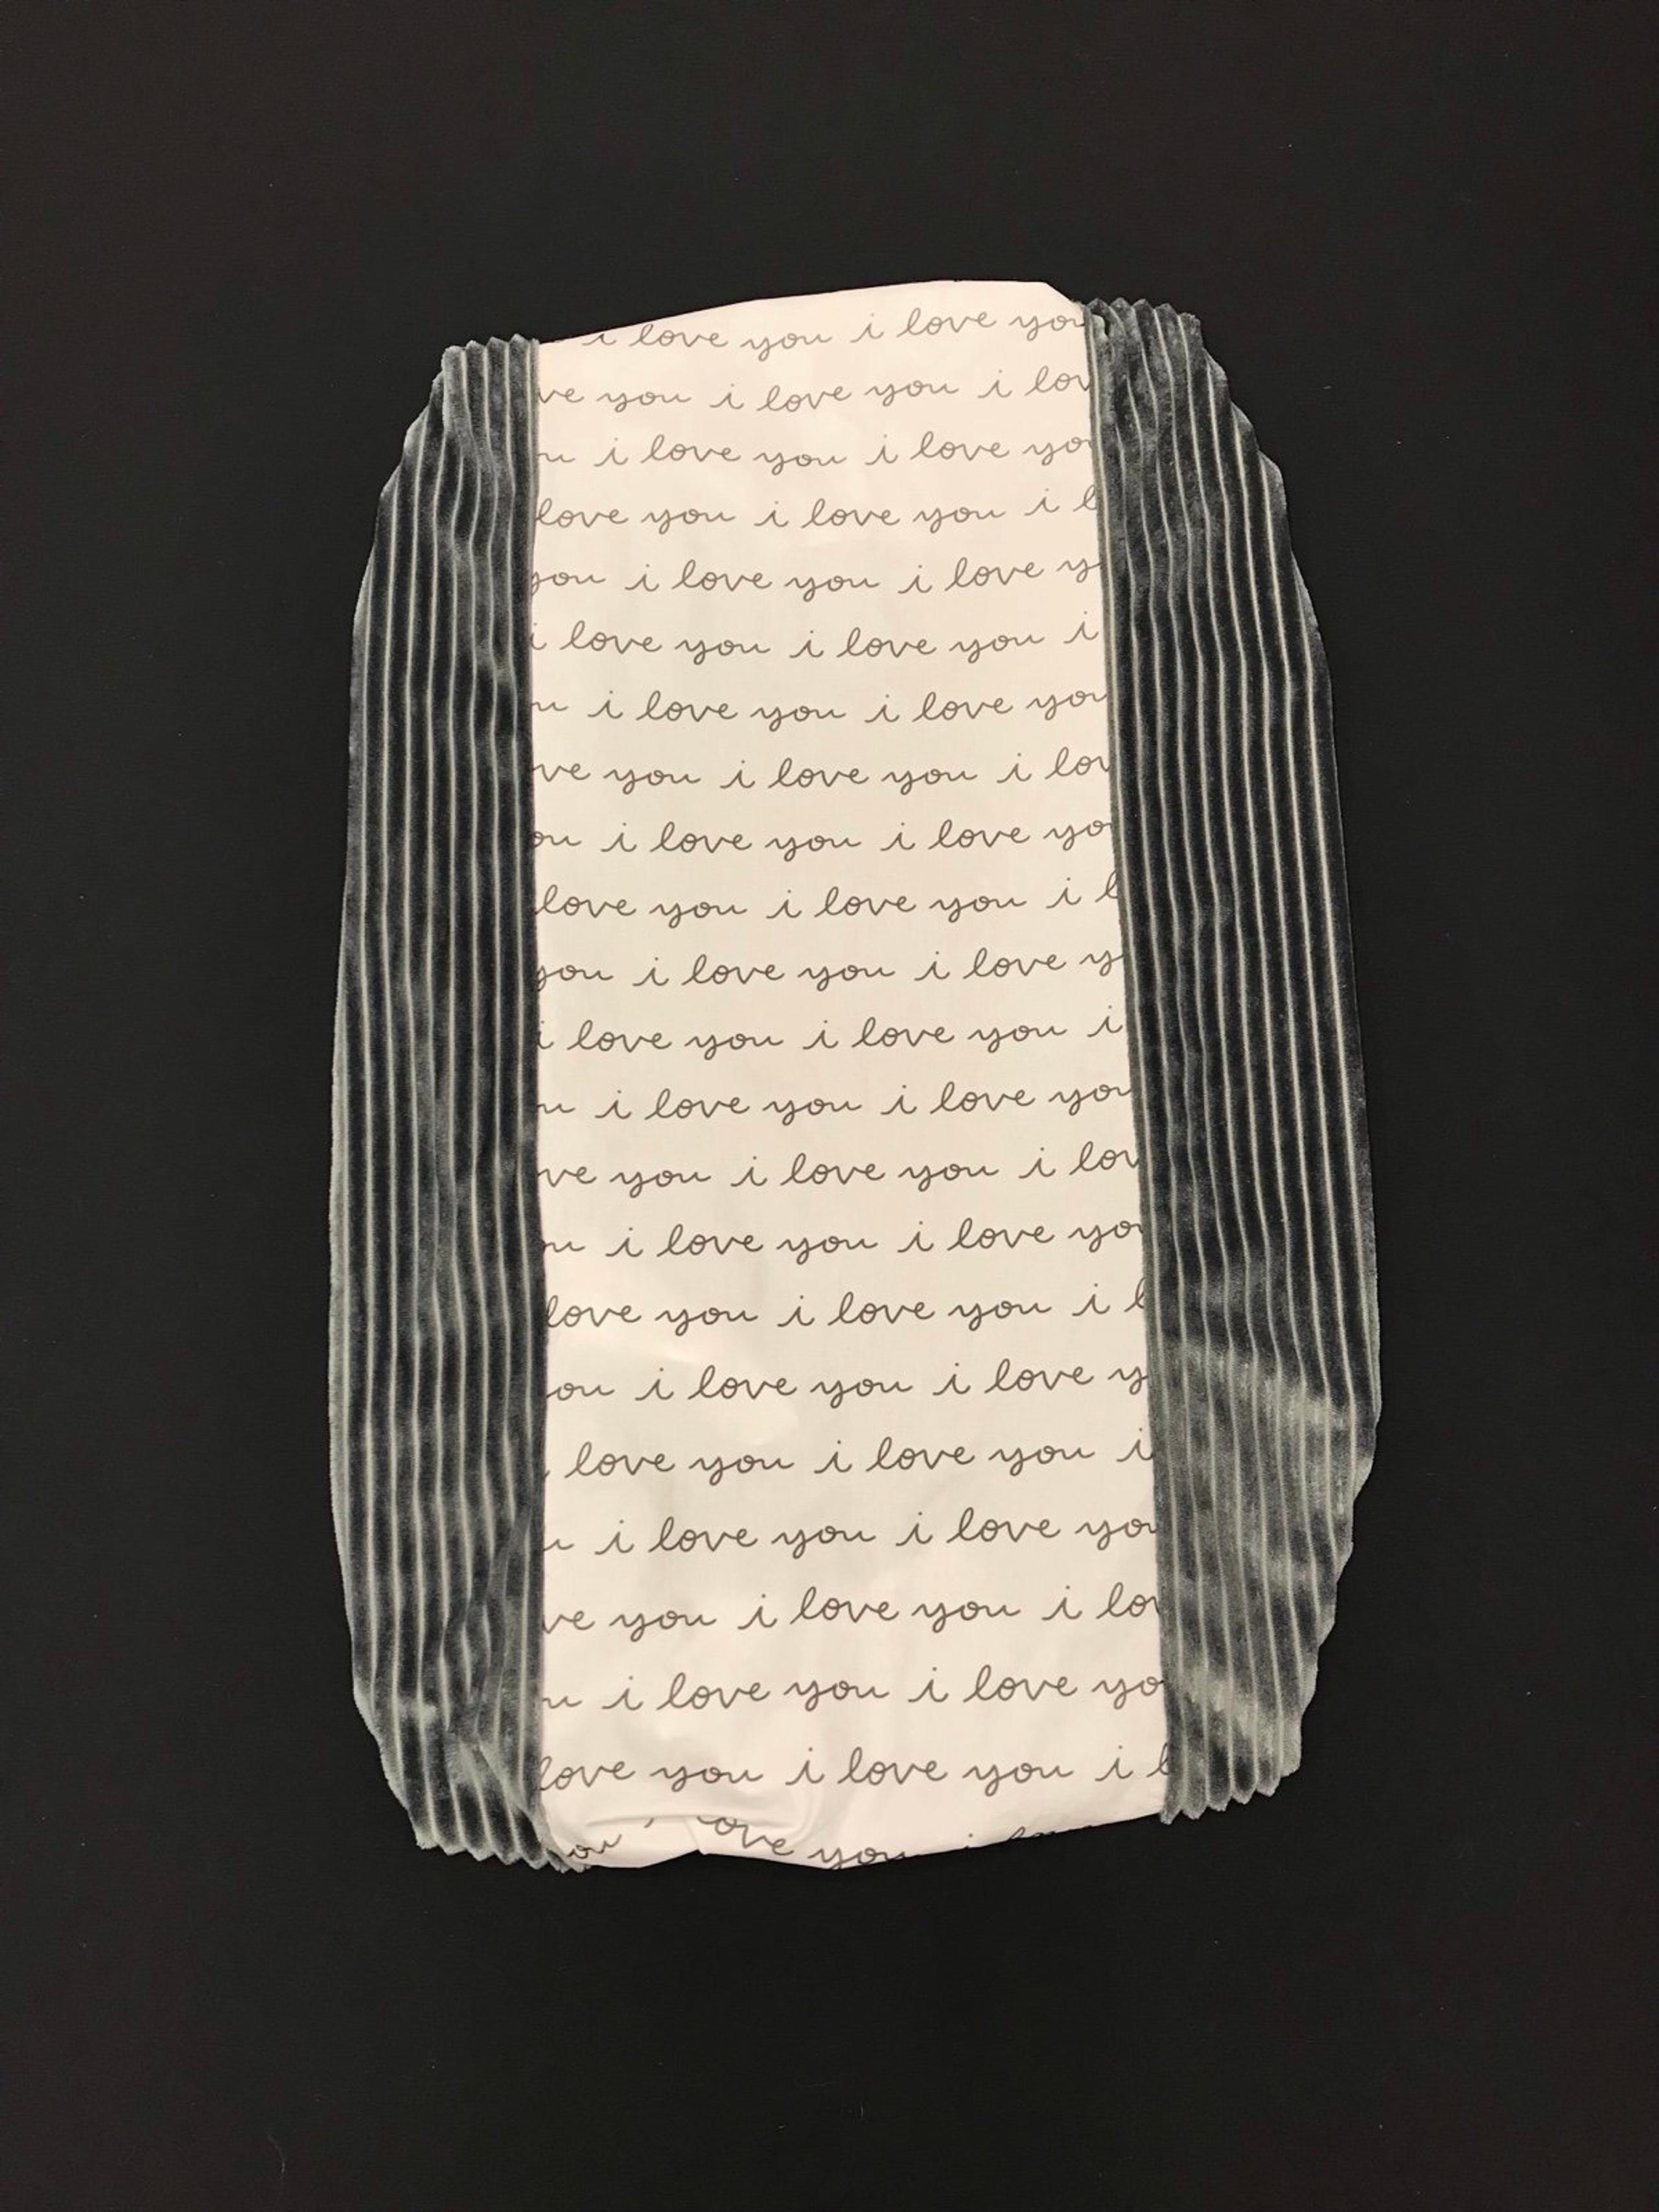 i love you i love you
ve you i love you i lov
u i love you i love yo
love you i love you i l
you i love you i love y
i love you i love you i
u i love you i love you
ve you i love you i lov
ou i love you i love yo
love you i love you i l
you i love you i love y
i love you i love you i
u i love you i love you
ve you i love you i lov
ou i love you i love yo
love you i love you i l
ou i love you i love y
love you i love you i
u i love you i love you
ve you i love you i lov
u i love you i love yo
love you i love you i l
ou ove you i